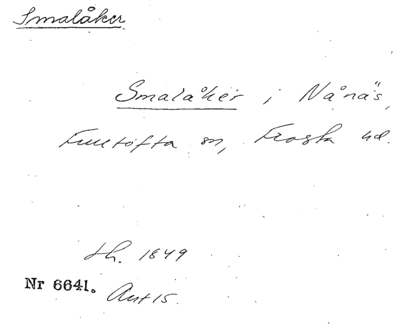 Smalåker
Smalåker i Nånäs,
Fultofta sn, Frosta hd.
th. 1849
Nr 6641. Ant 15.